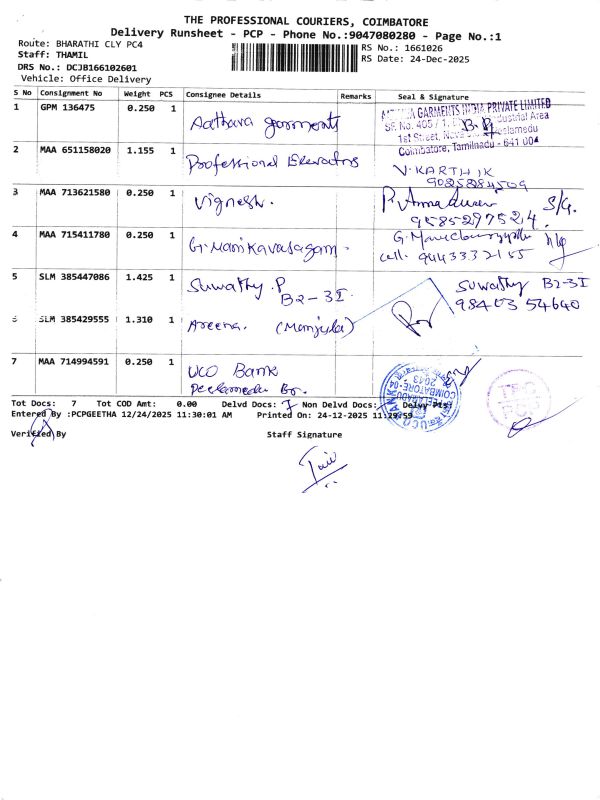 THE PROFESSIONAL COURIERS, COIMBATORE
Delivery Runsheet - PCP - Phone No.:9047080280 - Page No.:1
Route: BHARATHI CLY PC4
RS No.: 1661026
Staff: THAMIL
RS Date: 24-Dec-2025
DRS No.: DCJB166102601
Vehicle: Office Delivery
S No Consignment No Weight PCS Consignee Details Remarks Seal & Signature
1 GPM 136475 0.250 1 Aathava garments
GARMENTS INDIA PRIVATE LIMITED
SF. No. 405 / 1, Industrial Area
1st Street,
Coimbatore, Tamilnadu - 641 004
2 MAA 651158020 1.155 1 Professional Elevators
V. KARTHIK
9025284509
3 MAA 713621580 0.250 1 Vignesh.
9585297524.
4 MAA 715411780 0.250 1 G. Manikavasagam.
cell. 9443332155
5 SLM 385447086 1.425 1 Suwathy.P
B2-3I
Suwathy B2-3I
98403 54640
6 SLM 385429555 1.310 1 Areena. (Manjula)
7 MAA 714994591 0.250 1 UCO Bank
Peelamedu Br.
UCO BANK
COIMBATORE-04
2013
Tot Docs: 7 Tot COD Amt: 0.00 Delvd Docs: 7 Non Delvd Docs:
Entered By :PCPGEETHA 12/24/2025 11:30:01 AM Printed On: 24-12-2025 11:29:59
Verified By Staff Signature